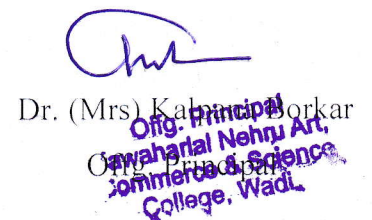 Dr. (Mrs) Kalpana Borkar
Offg. Principal
Offg. Principal
Jawaharlal Nehru Art,
Commerce & Science
College, Wadi.